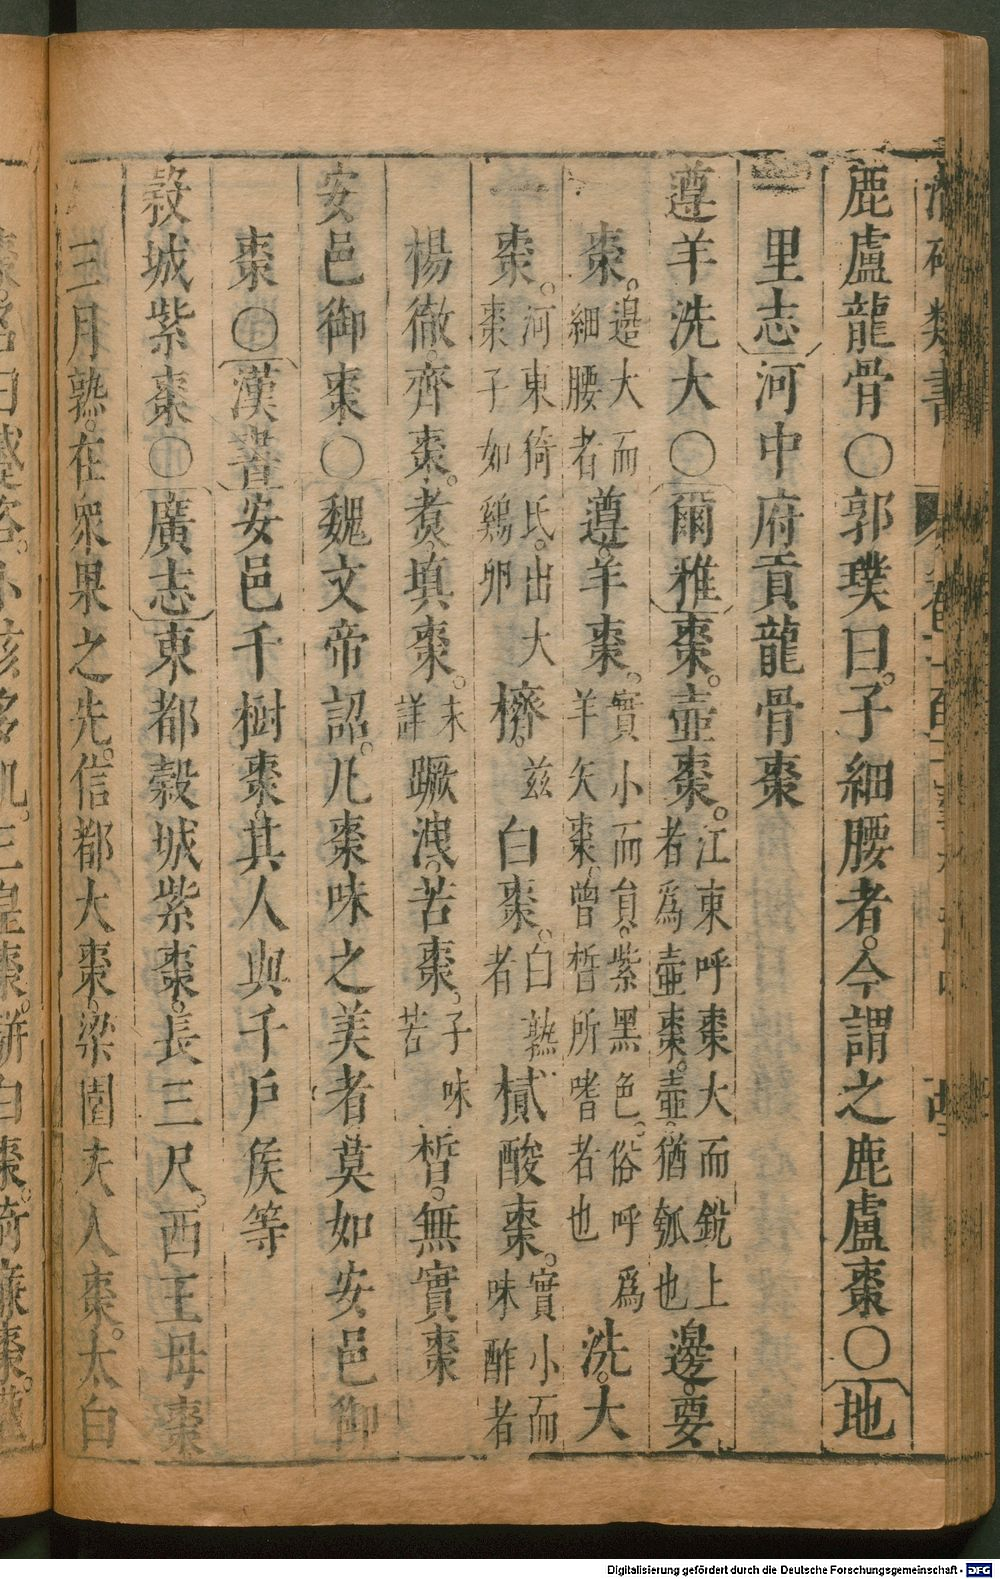 鹿盧龍骨○郭璞曰。子細腰者。今謂之鹿盧棗○地
里志河中府貢龍骨棗
遵羊洗大○爾雅棗。壺棗。江東呼棗大而銳上者為壺棗。壺。猶瓠也邊。要
棗。邊大而細腰者遵。羊棗。實小而員。紫黑色。俗呼為羊矢棗。曾晳所嗜者也洗。大
棗。河東猗氏。出大棗子如鷄卵櫅。茲白棗。白熟者樲酸棗。實小而味酢者
楊徹。齊棗。煑填棗。未詳蹶洩。苦棗。子味苦晳。無實棗
安邑御棗○魏文帝詔。凡棗味之美者莫如安邑御
棗○漢書安邑千樹棗。其人與千戶侯等
穀城紫棗○廣志東都穀城紫棗。長三尺。西王母棗
三月熟。在衆果之先。信都大棗。梁園夫人棗。太白
棗。名曰蹙咨。小核多肌。三皇棗。駢白棗。猗廉棗。
Digitalisierung gefördert durch die Deutsche Forschungsgemeinschaft - DFG